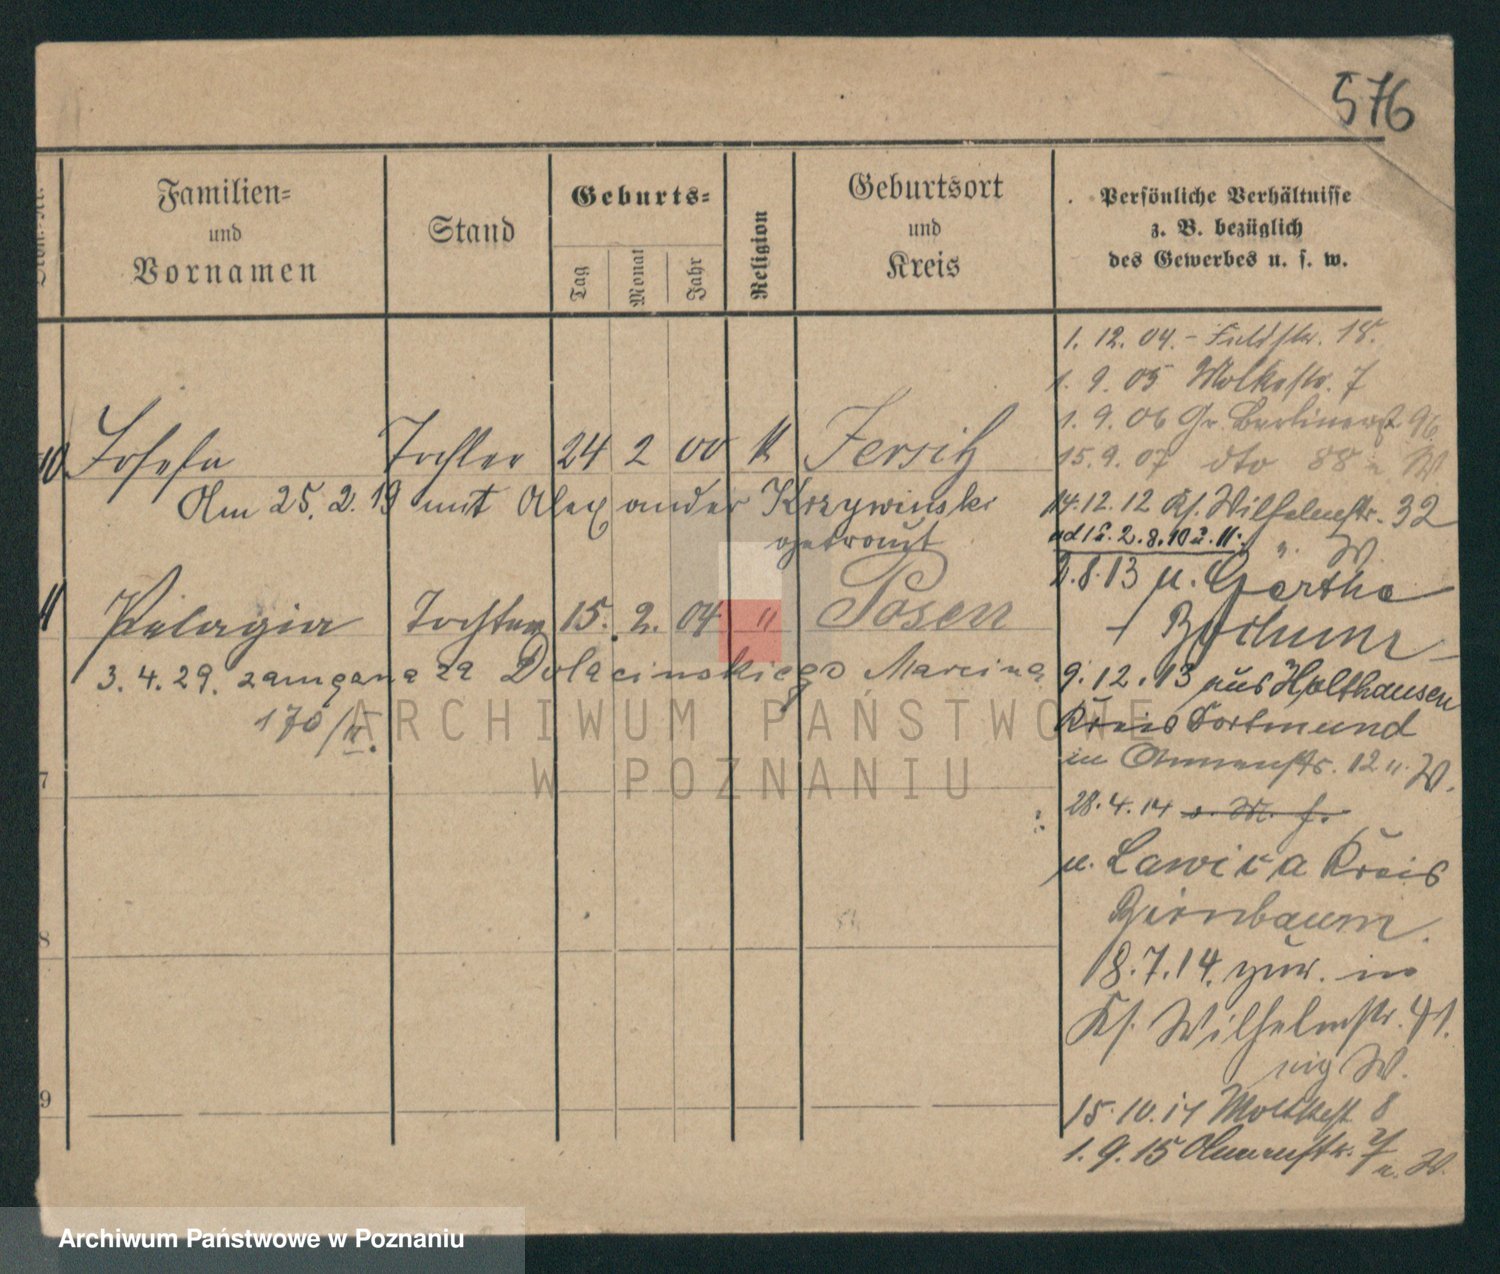 576
Familien=
und
Vornamen
Stand
Geburts=
Tag
Monat
Jahr
Religion
Geburtsort
und
Kreis
Persönliche Verhältnisse
z. B. bezüglich
des Gewerbes u. s. w.
10 Josefa Tochter 24 2 00 K Jersitz
Am 25. 2. 19 mit Alexander Krzywinski
getraut
11 Pelagia Tochter 15. 2. 04 " Posen
3. 4. 29. zamężna za Dolacinskiego Marcina
170/II.
7
8
9
1. 12. 04. - Feldstr. 18.
1. 9. 05 Moltkestr. 7
1. 9. 06 Gr. Berlinerst 96
15. 9. 07 dto 88 u W
14. 12. 12 Ks. Wilhelmstr. 32
ad 1 u. 2. 8. 10 u. 11. u. W.
2. 8. 13 n. Gerthe
Bochum
9. 12. 13 aus Holthausen
Kreis Dortmund
in 12 u. W.
28. 4. 14
n. Lawica Kreis
Birnbaum.
18. 7. 14. zur. in
Ks. Wilhelmstr. 41.
W.
15. 10. 14 Moltkest 8
1. 9. 15 7 u. W.
ARCHIWUM PAŃSTWOWE
W POZNANIU
Archiwum Państwowe w Poznaniu